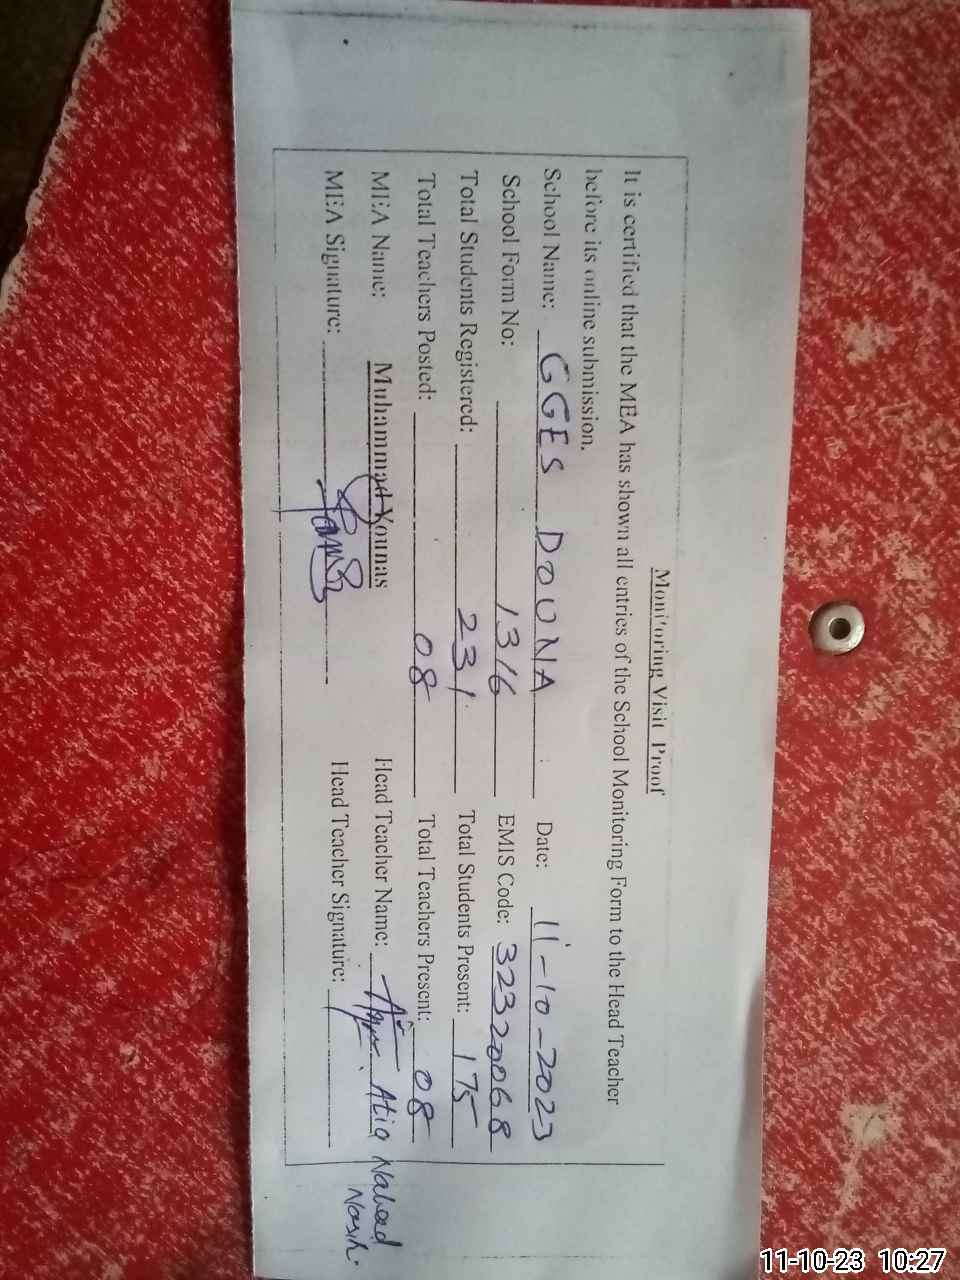 Monitoring Visit Proof
It is certified that the MEA has shown all entries of the School Monitoring Form to the Head Teacher
before its online submission.
School Name: GGES DOUNA Date: 11-10-2023
School Form No: 1316 EMIS Code: 32320068
Total Students Registered: 231 Total Students Present: 175
Total Teachers Posted: 08 Total Teachers Present: 08
MEA Name: Muhammad Younas Head Teacher Name: Atiq Nahad
MEA Signature: Head Teacher Signature:
11-10-23 10:27